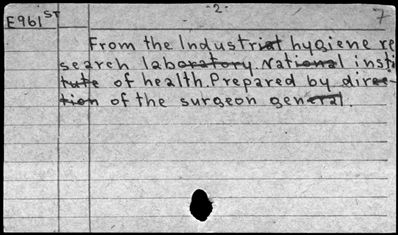 -2-
7
E961ST
From the Industrial hygiene re
search laboratory. National insti
tute of health. Prepared by direc-
tion of the surgeon general.